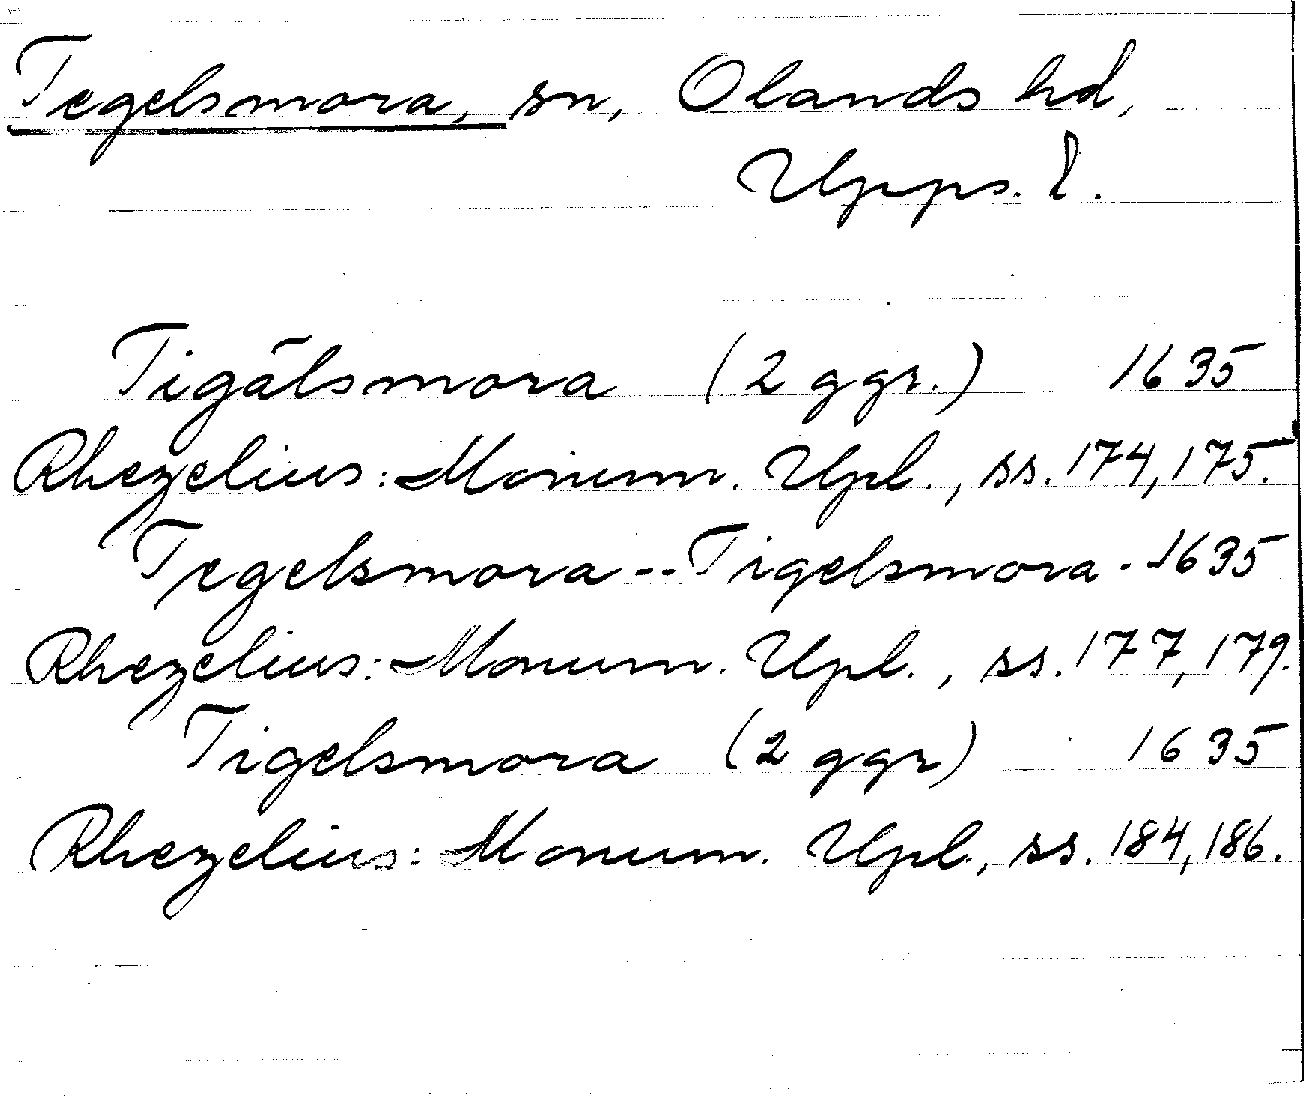 Tegelsmora, sn, Olands hd,
Upps. l.
Tigälsmora (2 ggr.) 1635
Rhezelius: Monum. Upl., ss. 174, 175.
Tegelsmora -- Tigelsmora - 1635
Rhezelius: Monum. Upl., ss. 177, 179.
Tigelsmora (2 ggr) 1635
Rhezelius: Monum. Upl., ss. 184, 186.